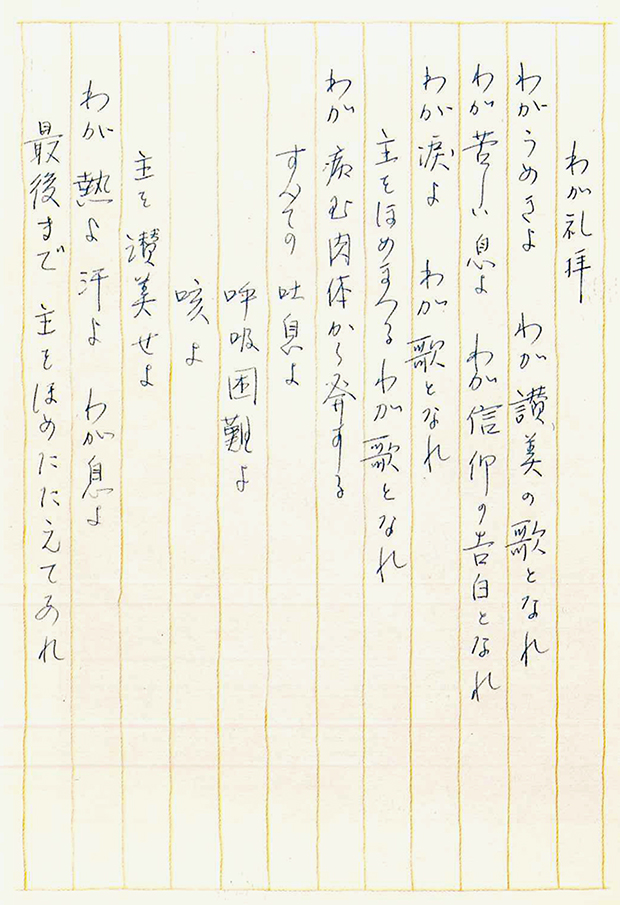 わが礼拝
わがうめきよ わが讃美の歌となれ
わが苦しい息よ わが信仰の告白となれ
わが涙よ わが歌となれ
主をほめまつるわが歌となれ
わが病む肉体から発する
すべての吐息よ
呼吸困難よ
咳よ
主を讃美せよ
わが熱よ 汗よ わが息よ
最後まで 主をほめたたえてあれ